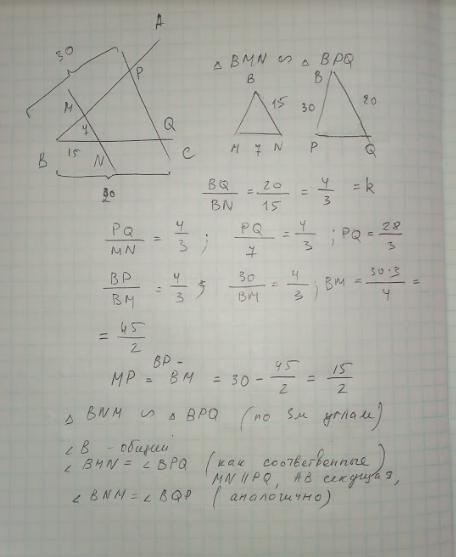 A
30
P
M
7
Q
B 15 N C
20
△ BMN ∾ △ BPQ
B B
15 30 20
M 7 N P Q
BQ/BN = 20/15 = 4/3 = k
PQ/MN = 4/3 ; PQ/7 = 4/3 ; PQ = 28/3
BP/BM = 4/3 ; 30/BM = 4/3 ; BM = 30·3/4 =
= 45/2
MP = BP - BM = 30 - 45/2 = 15/2
△ BNM ∾ △ BPQ (по 3м углам)
∠B - общий
∠BMN = ∠BPQ (как соотвественные)
MN || PQ, AB секущая,
∠BNM = ∠BQP (аналогично)